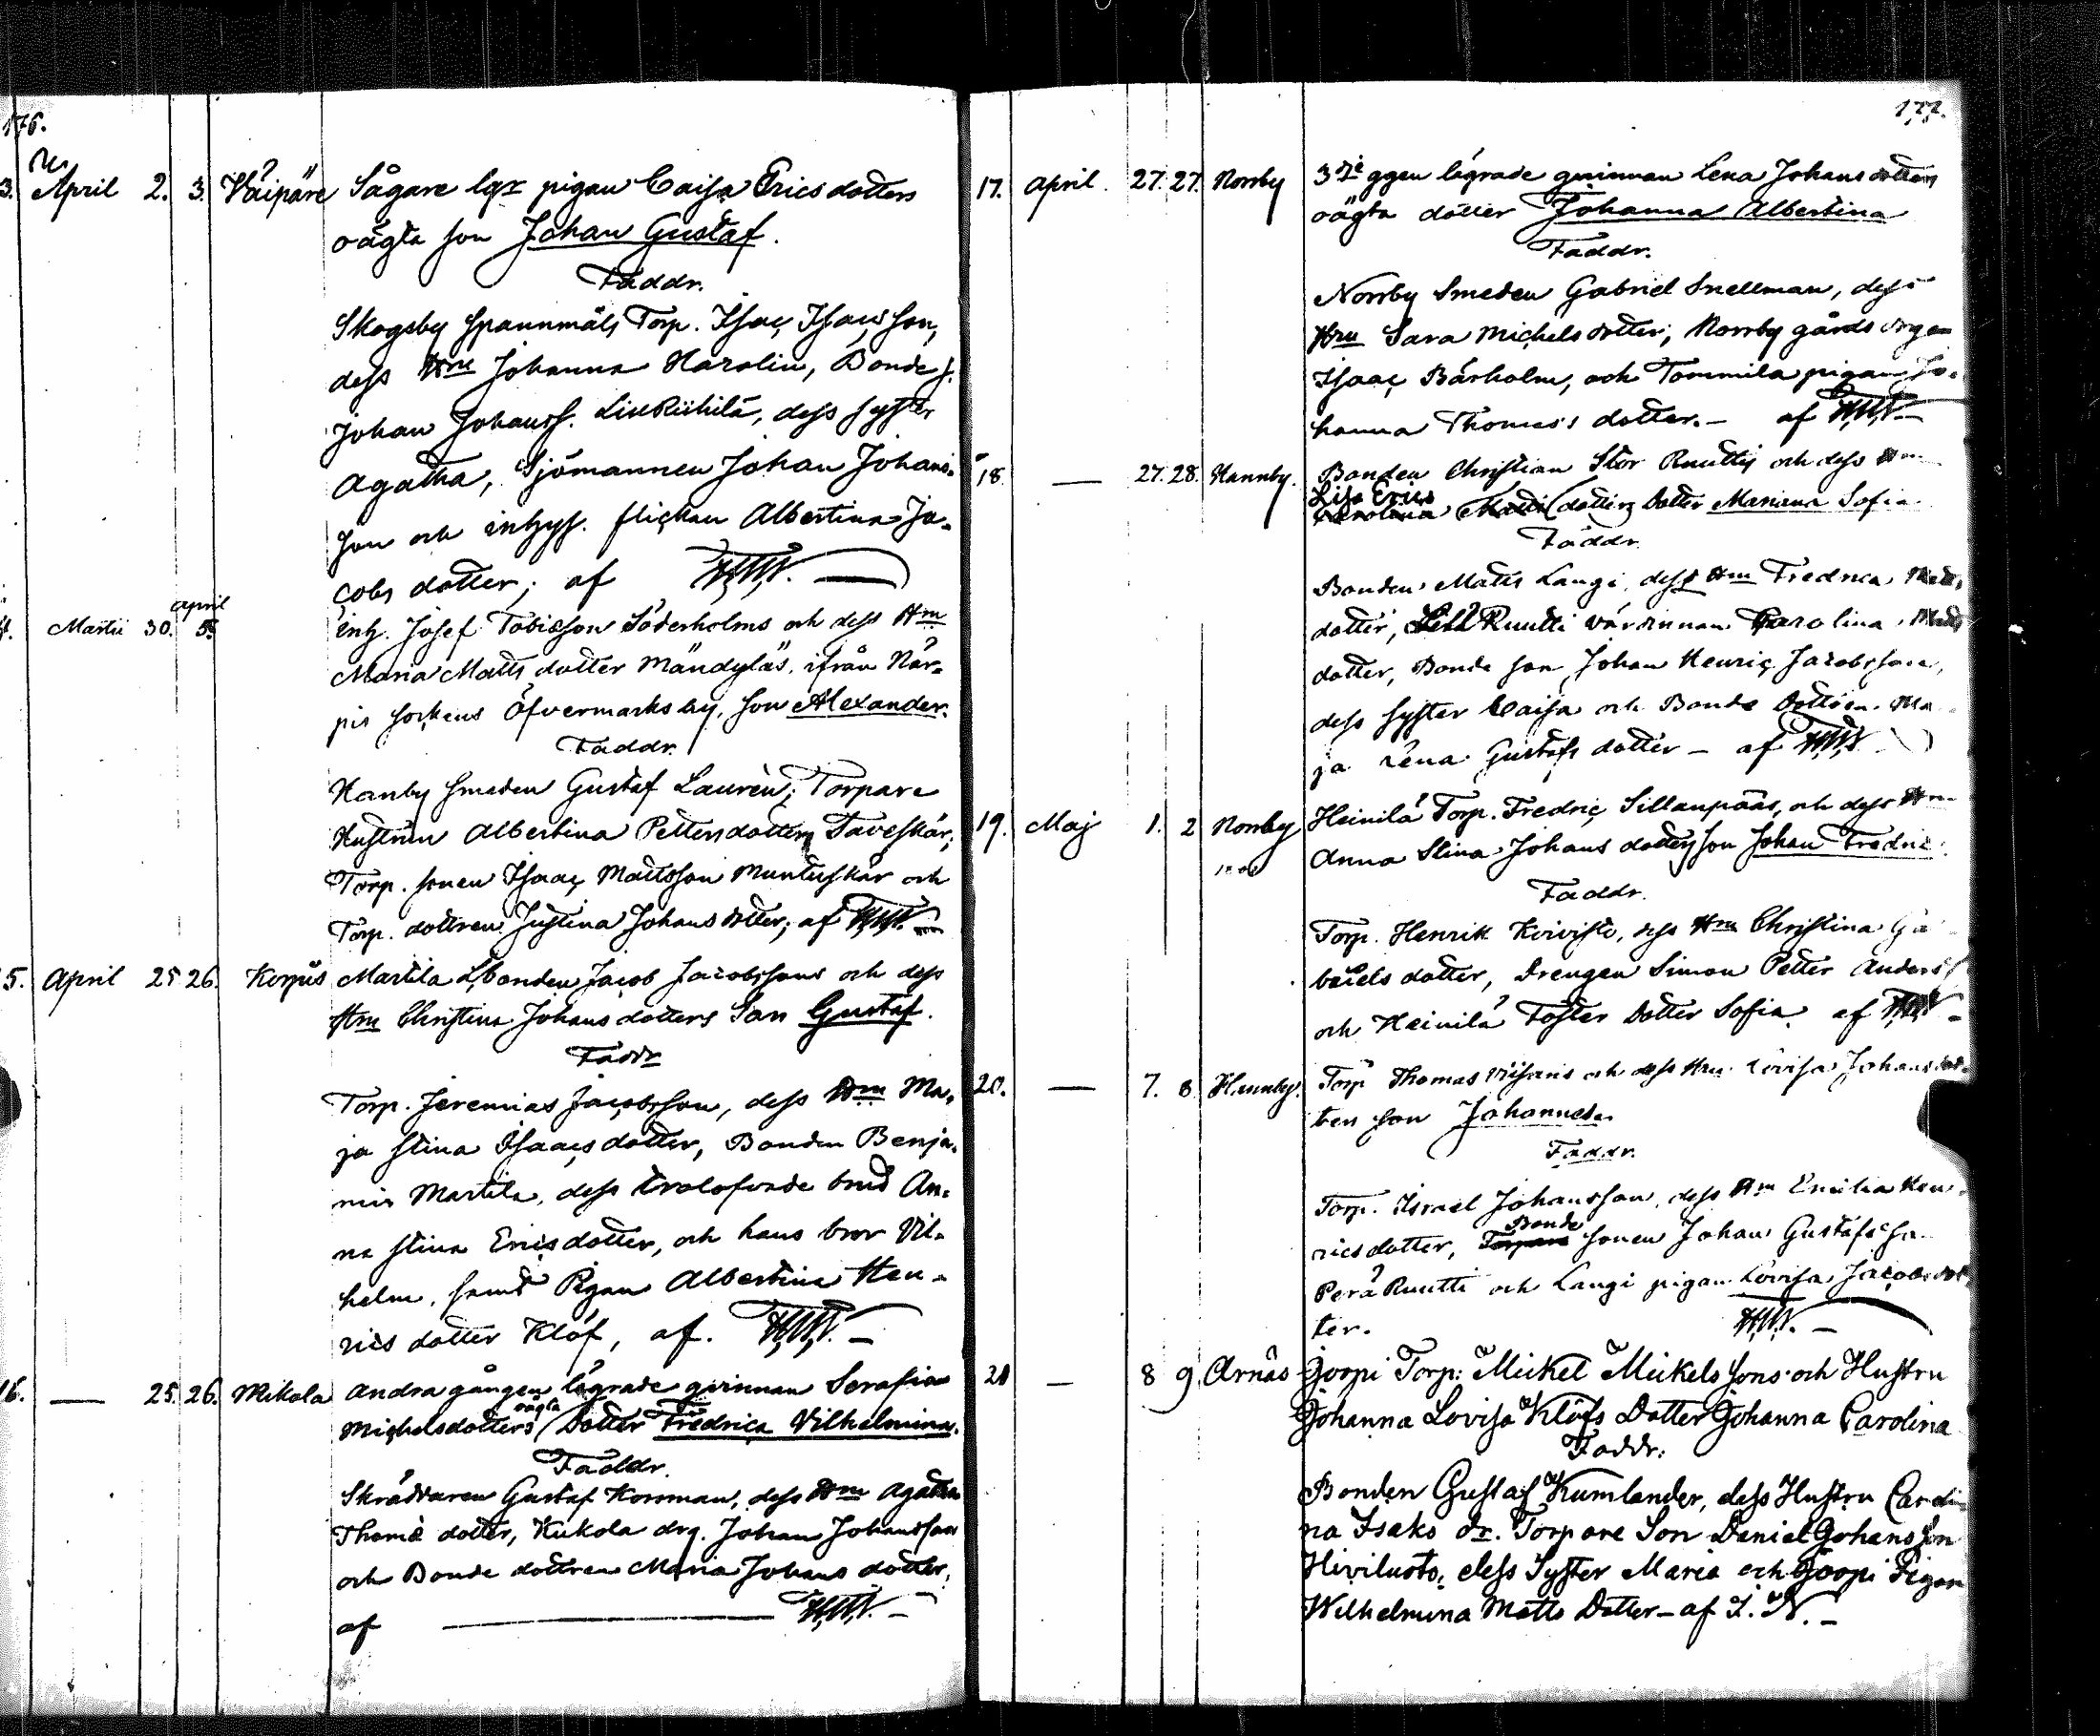 176.
3. April 2. 3. Våipäre Sågare lgr pigan Caisa Ericsdotters
oägta son Johan Gustaf.
Faddr.
Skogsby spannmåls Torp. Isac Isacsson,
dess Hru Johanna Harolin, Bonde s.
Johan Johanss. LillRiihilä, dess syster
Agatha, Sjömannen Johan Johans-
son och inhys. flickan Albertina Ja-
cobs dotter; af
4. Martii 30. april 5. inh. Josef Tobiasson Söderholms och dess Hru
Maria Matts dotter Mändyläs ifrån När-
pis sockens Öfvermarks by, son Alexander.
Faddr.
Hanby smeden Gustaf Laurèn; Torpare
Hustrun Albertina Pettersdotter Taveskär;
Torp. sonen Isaac Mattsson Muntuskär och
Torp. dottren Justina Johansdotter; af
5. April 25 26. Korpis Martila L. bonden Jacob Jacobssons och dess
Hru Christina Johans dotters Son Gustaf.
Faddr
Torp. Jeremias Jacobsson, dess Hru Ma-
ja Stina Isaacs dotter, Bonden Benja-
min Martila, dess trolofvade brud An-
na Stina Ericsdotter, och hans bror Vil-
helm, samt Pigan Albertina Hen-
rics dotter Klöf, af.
16. — 25. 26. Mikola Andra gången lägrade qvinnan Serafia
Michelsdotters oägta Dotter Fredrica Vilhelmina.
Faddr.
Skräddaren Gustaf Korsman, dess Hru Agatha
Thomæ dotter, Kukola drg. Johan Johansson
och Bonde dottren Maria Johans dotter,
af
177.
17. April. 27. 27. Norrby 3dje ggen lägrade qvinnan Lena Johans dotters
oägta dotter Johanna Albertina
Faddr.
Norrby Smeden Gabriel Snellman, dess
Hru Sara Michels dotter; Norrby gårds drgen
Isaac Bärholm, och Tommila pigan Jo-
hanna Thomas's dotter. — af
18. — 27. 28. Hannby. Bonden Christian Stor Ruuttis och dess Hru
Lisa Erics dotters Dotter Mariana Sofia
Faddr.
Bonden Matts Laugi, dess Hru Fredrica Matts
dotter, Ruutti värdinnan Carolina Matts
dotter, Bonde son Johan Henric Jacobsson,
dess syster Caisa och Bonde Dottren Ma-
ja Lena Gustafs dotter — af
19. Maj 1. 2 Norrby Heinilä Torp. Fredric Sillanpääs, och dess Hru
Anna Stina Johans dotters son Johan Fredric
Faddr.
Torp. Henrik Koivisto, dess Hru Christina Ga-
briels dotter, Drengen Simon Petter Anderss
och Heinilä Foster Dotter Sofia. af
20. — 7. 8 Hannby. Torp Thomas och dess Hru Lovisa Johans dot-
ters son Johannes.
Faddr.
Torp. Israel Johansson, dess Hru Emilia Hen-
ricsdotter, Torpare Bonde sonen Johan Gustafsson
Perä Ruutti och Laugi pigan Lovisa Jacobs dot-
ter.
21 — 8 9 Arnäs Joopi Torp: Mickel Mickels sons och Hustru
Johanna Lovisa Klöfs Dotter Johanna Carolina
Faddr:
Bonden Gustaf Kumlander, dess Hustru Caroli
na Isaks dr. Torpare Son Daniel Johansson
Hiviluoto, dess Syster Maria och Joopi Pigan
Wilhelmina Matts Dotter — af J. N. —